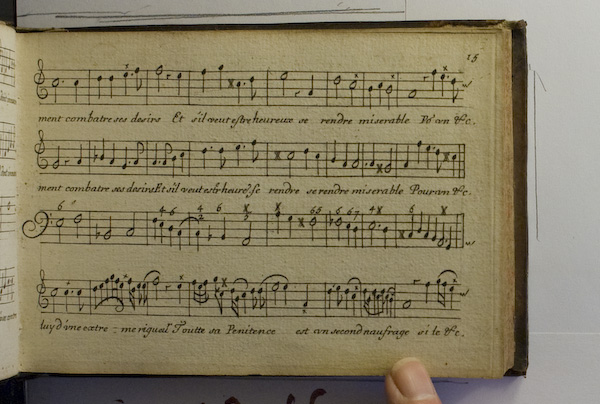 15
ment combatre ses desirs Et s'il veut estre heureux se rendre miserable Po' un &c.
ment combatre ses desirs Et s'il veut estr heure' se rendre se rendre miserable Pour un &c.
6 4 6 4 2 6 6 5 6 6 7 4 6
luy d'une extre me rigueur Toutte sa Penitence est un second naufrage si le &c.